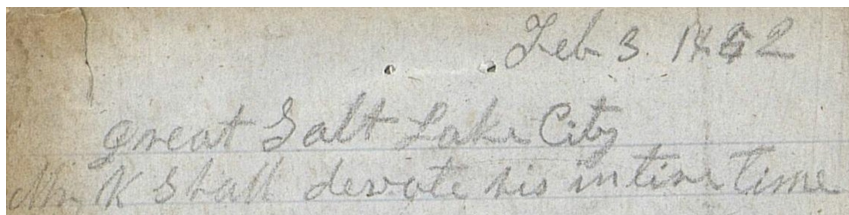 Feb 3. 1852
Great Salt Lake City
Mr. K Shall devote his intire time